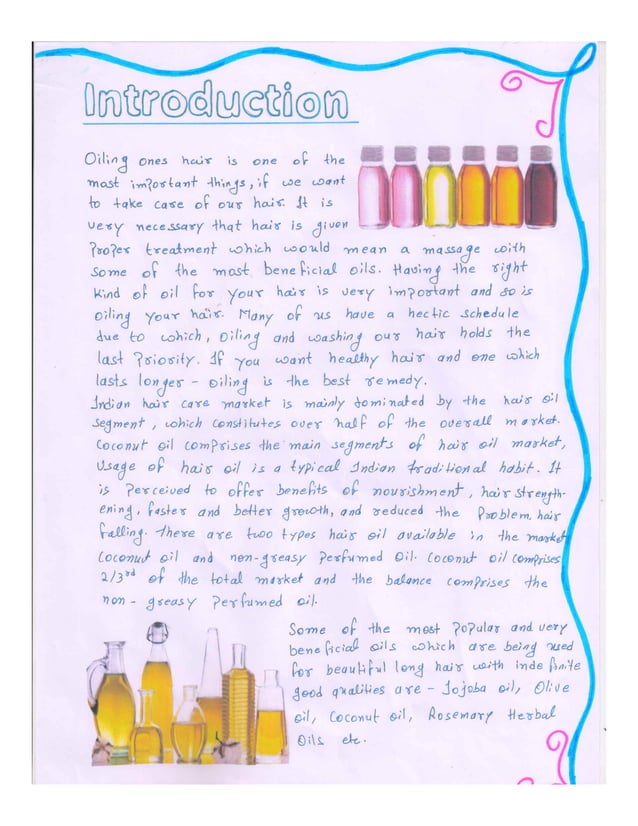 Introduction
Oiling ones hair is one of the
most important things, if we want
to take care of our hair. It is
very necessary that hair is given
Proper treatment which would mean a massage with
some of the most beneficial oils. Having the right
kind of oil for your hair is very important and so is
oiling your hair. Many of us have a hectic schedule
due to which, oiling and washing our hair holds the
last Priority. If you want healthy hair and one which
lasts longer - oiling is the best remedy.
Indian hair care market is mainly dominated by the hair oil
segment, which constitutes over half of the overall market.
Coconut oil comprises the main segments of hair oil market,
Usage of hair oil is a typical Indian traditional habit. It
is Perceived to offer benefits of nourishment, hair strength-
ening, faster and better growth, and reduced the Problem hair
falling. There are two types hair oil available in the market
Coconut oil and non-greasy Perfumed Oil. Coconut oil comprises
2/3rd of the total market and the balance comprises the
non - greasy Perfumed oil.
Some of the most Popular and very
beneficial oils which are being used
for beautiful long hair with indefinite
good qualities are - Jojoba oil, Olive
oil, Coconut oil, Rosemary Herbal
Oils etc.